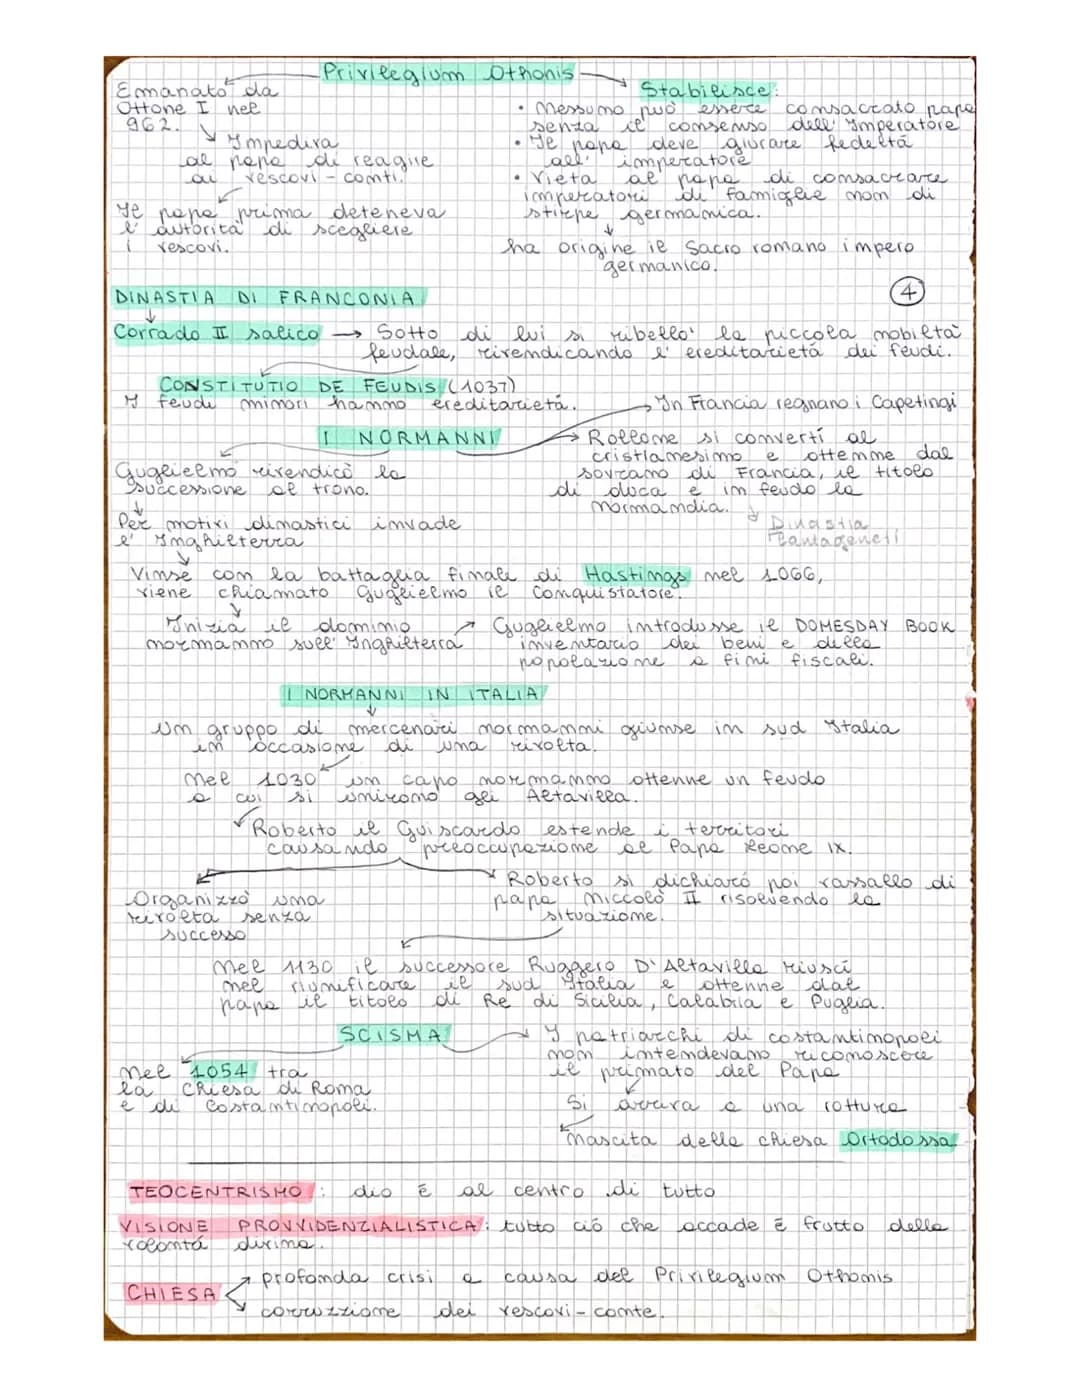 Privilegium Othonis
Emanato da
Ottone I nel
962.
Impediva
al papa di reagire
ai vescovi-conti.
Il papa prima deteneva
l'autorità di scegliere
i vescovi.
Stabilisce:
• Nessuno può essere consacrato papa
senza il consenso dell'Imperatore
• Il papa deve giurare fedeltà
all'imperatore
• Vieta al papa di consacrare
imperatori di famiglie non di
stirpe germanica.
ha origine il Sacro romano impero
germanico.
4
DINASTIA DI FRANCONIA
Corrado II salico → Sotto di lui si ribellò la piccola nobiltà
feudale, rivendicando l'ereditarietà dei feudi.
CONSTITUTIO DE FEUDIS (1037)
I feudi minori hanno ereditarietà.
In Francia regnano i Capetingi
I NORMANNI
Rollone si convertí al
cristianesimo e ottenne dal
sovrano di Francia, il titolo
di duca e in feudo la
normandia.
Dinastia
Plantageneti
Guglielmo rivendicò la
successione al trono.
Per motivi dinastici invade
l'Inghilterra
Vinse con la battaglia finale di Hastings nel 1066,
viene chiamato Guglielmo il Conquistatore.
Inizia il dominio
normanno sull'Inghilterra
Guglielmo introdusse il DOMESDAY BOOK
inventario dei beni e della
popolazione a fini fiscali.
I NORMANNI IN ITALIA
Un gruppo di mercenari normanni giunse in sud Italia
in occasione di una rivolta.
Nel 1030 un capo normanno ottenne un feudo
a cui si unirono gli Altavilla.
Roberto il Guiscardo estende i territori
causando preoccupazione al Papa Leone IX.
Organizzò una
rivolta senza
successo
Roberto si dichiaró poi vassallo di
papa Niccolò II risolvendo la
situazione.
Nel 1130 il successore Ruggero D'Altavilla riuscí
nel riunificare il sud Italia e ottenne dal
papa il titolo di Re di Sicilia, Calabria e Puglia.
SCISMA
Nel 1054 tra
la Chiesa di Roma
e di Costantinopoli.
I patriarchi di costantinopoli
non intendevano riconoscere
il primato del Papa
Si arriva a una rottura
nascita della chiesa Ortodossa
TEOCENTRISMO: dio è al centro di tutto
VISIONE PROVVIDENZIALISTICA: tutto ció che accade è frutto della
volontá divina.
CHIESA
profonda crisi a causa del Privilegium Othonis
corruzzione dei vescovi-conte.